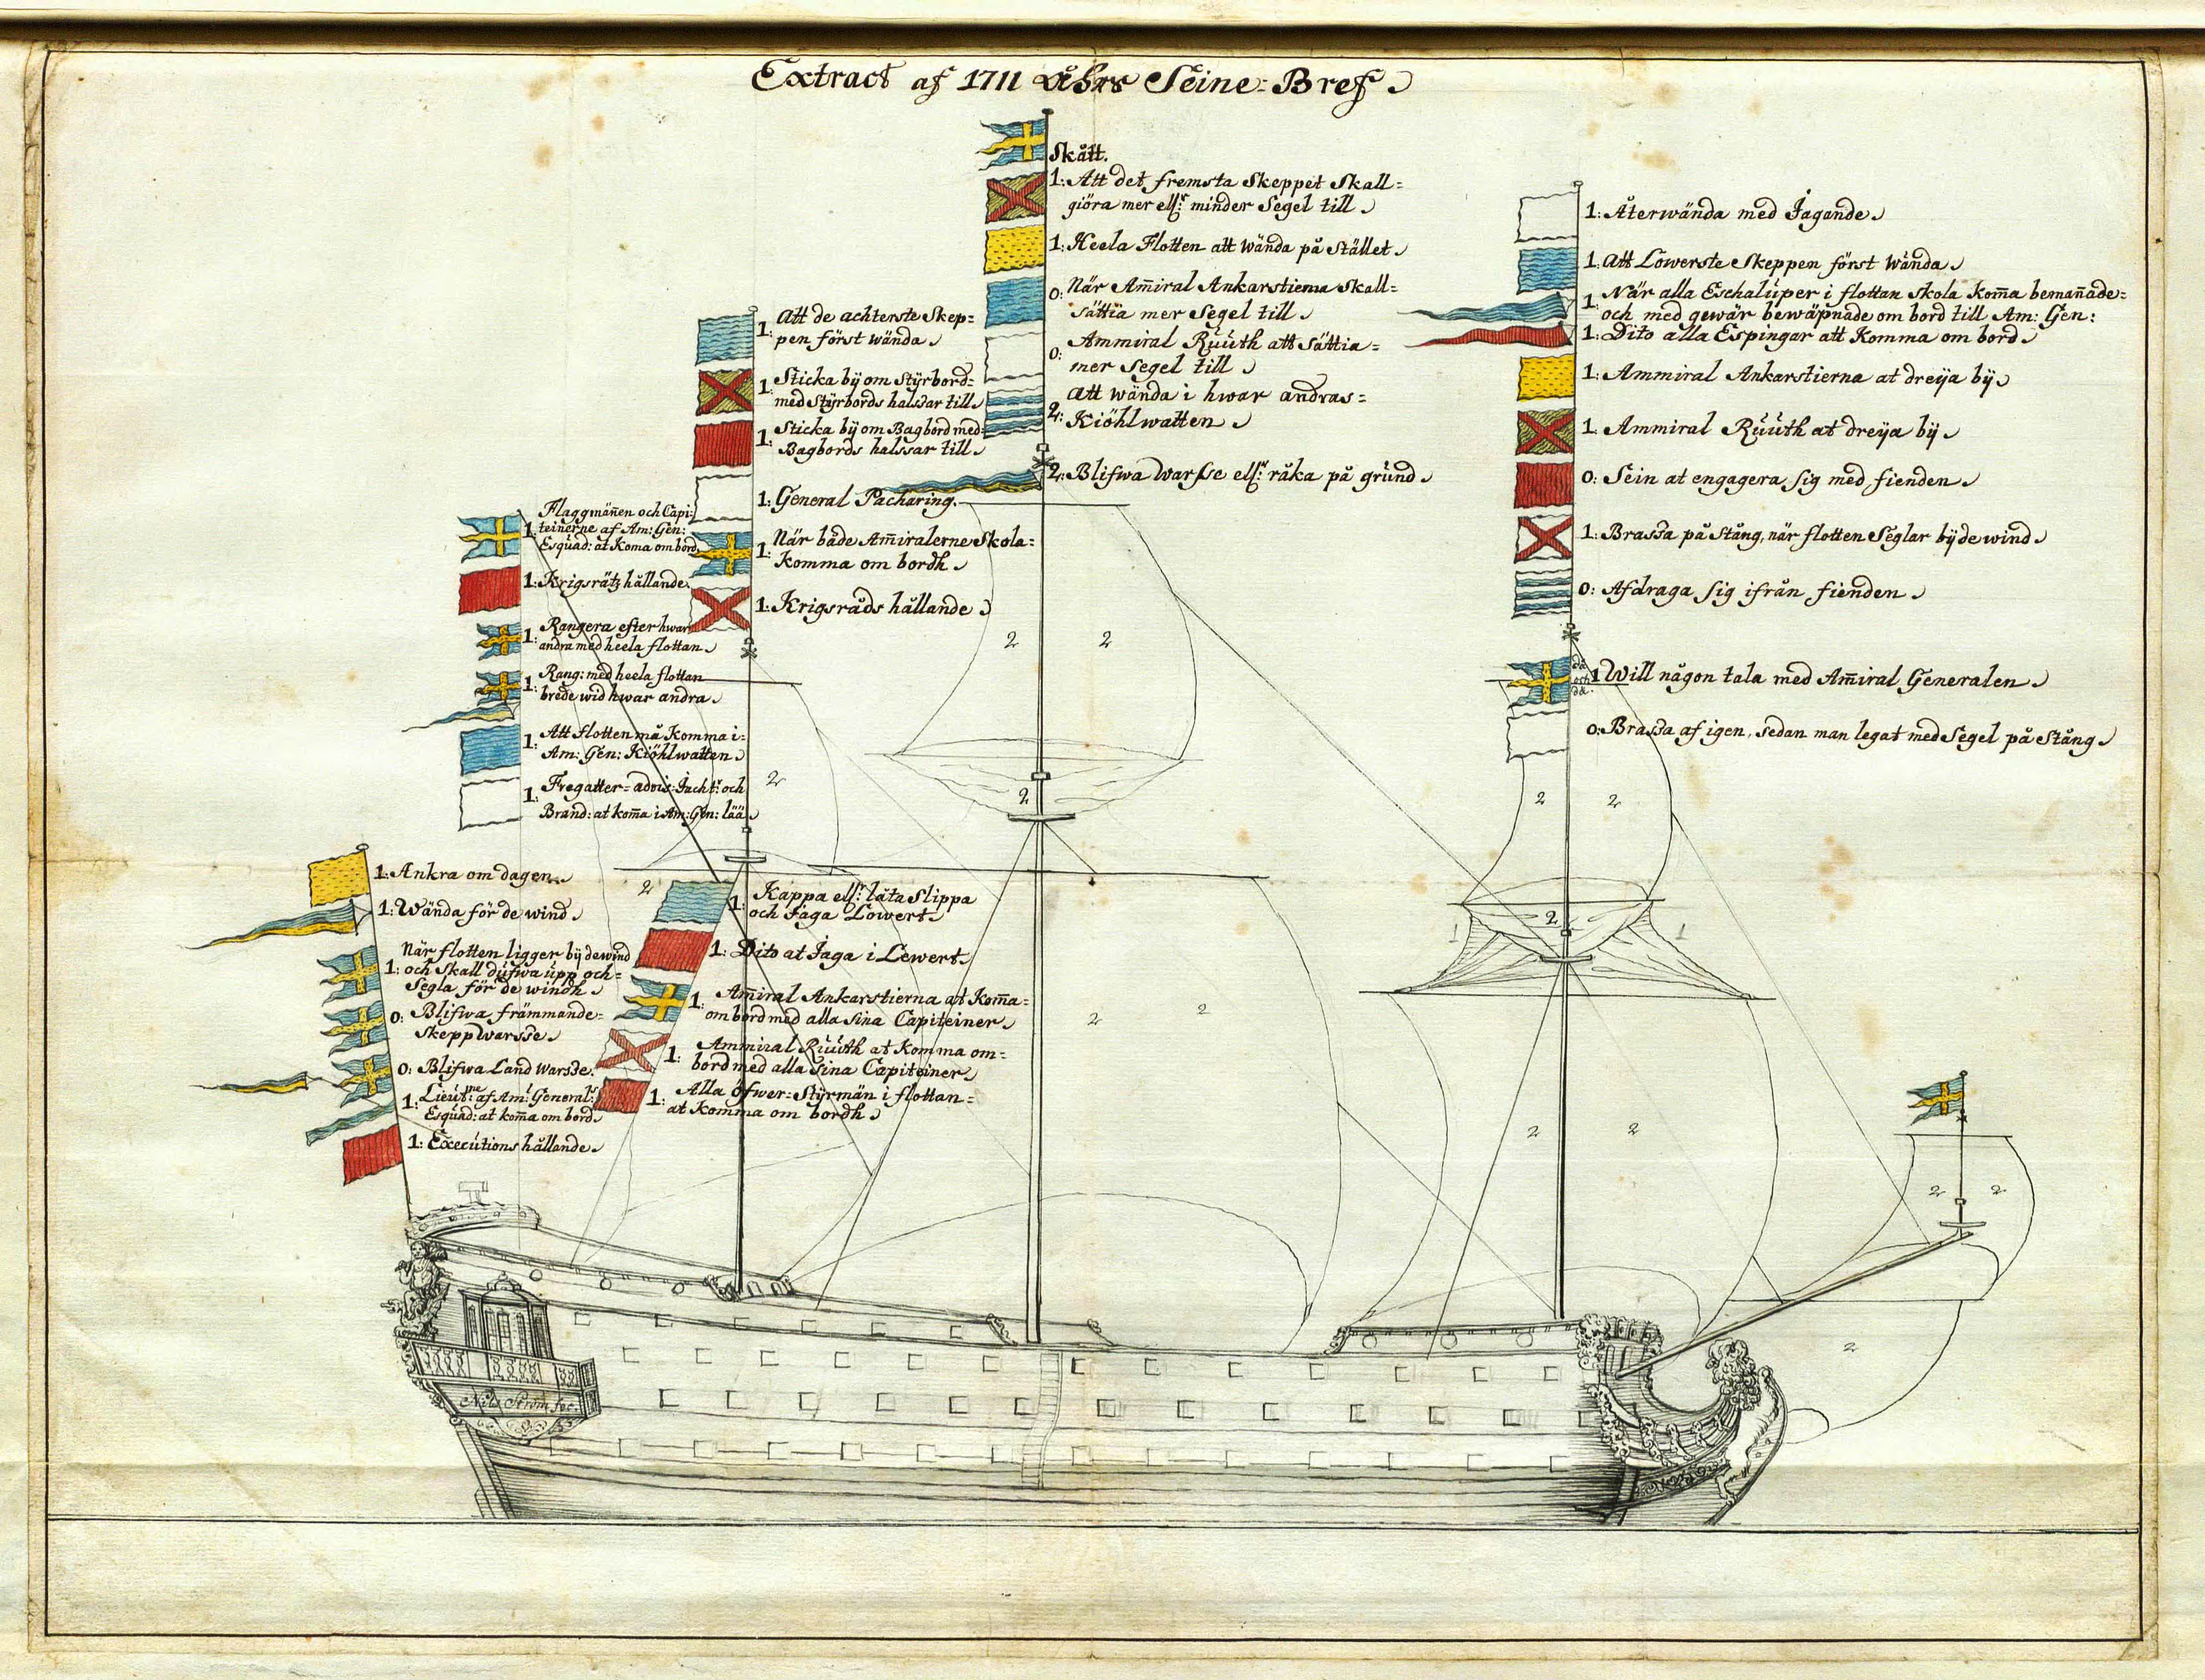 Extract af 1711 åhrs Seine=Bref
Skått.
1: Att det fremsta Skeppet Skall=
giöra mer ell:r minder Segel till
1: Heela Flotten att wända på Stället
0: När Am̄iral Ankarstierna Skall=
sättia mer Segel till
0: Ammiral Rúúth att Sättia=
mer Segel till
2: att wända i hwar andras=
Kiöhlwatten
2: Blifwa warsse ell:r råka på grund
1: Att de achterste Skep=
pen först wända
1: Sticka bÿ om Stÿrbord=
med Stÿrbords halssar till
1: Sticka bÿ om Bagbord med=
Bagbords halssar till
1: General Pacharing.
1: När både Am̄iralerne Skola=
komma om bordh
1: Krigsråds hållande
1: Flaggmän̄en och Capi:
teinerne af Am: Gen:
Esquad: at Koma om bord
1: Krigsrätz hållande
1: Rangera efter hwar
andra med heela flottan
1: Rang: med heela flottan
brede wid hwar andra
1: Att flotten må Komma i=
Am: Gen: Kiöhlwatten
1: Fregatter= advis: Jacht: och
Brand: at kom̄a i Am: Gen: lää
1: Ankra om dagen
1: Wända för de wind
1: När flotten ligger bÿ de wind
och Skall dúfwa úpp och=
Segla för de windh
0: Blifwa främmande=
Skepp warsse
0: Blifwa Land warsse
1: Lieút:ne af Am: General:s
Esquad: at kom̄a om bord
1: Executions hållande
1: Kappa ell:r låta Slippa
och Jaga Lowert
1: Dito at Jaga i Lewert
1: Am̄iral Ankarstierna at Kom̄a=
om bord med alla Sina Capiteiner
1: Ammiral Rúúth at Komma om=
bord med alla Sina Capiteiner
1: Alla öfwer=Stÿrmän i flottan=
at Komma om bordh
1: Återwända med Jagande
1: att Lowerste Skeppen först Wända
1: När alla Eschalúper i flottan Skola Kom̄a beman̄ade=
och med gewär bewäpnade om bord till Am: Gen:
1: Dito alla Espingar att Komma om bord
1: Ammiral Ankarstierna at dreÿa bÿ
1: Ammiral Rúúth at dreÿa bÿ
0: Sein at engagera sig med fienden
1: Brassa på Stång, när flotten Seglar bÿ de wind
0: Afdraga sig ifrån fienden
1 Will någon tala med Am̄iral Generalen
0: Brassa af igen, sedan man legat med Segel på Stång
2 2
2
2
2
2 2
2
1 1
2 2
2 2
2 2
2
Nils Ström fec: